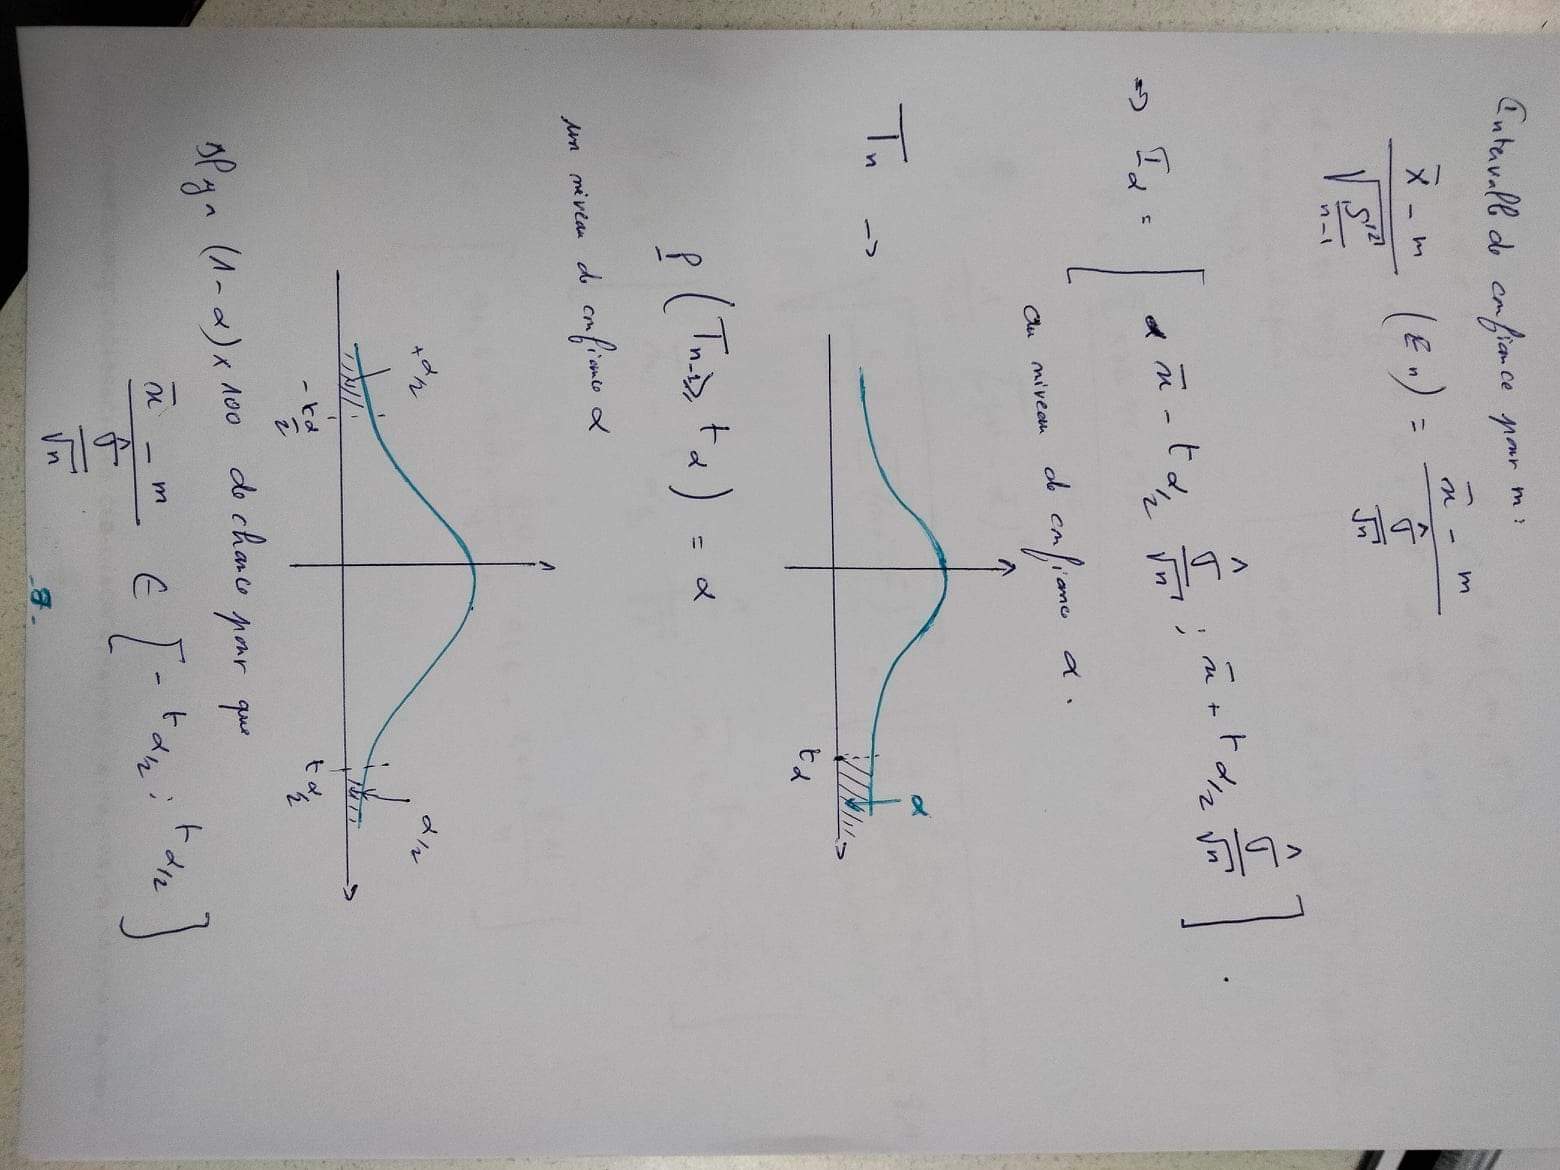 Intervalle de confiance pour m :
(X̄ - m) / √(S'² / (n-1)) (En) = (x̄ - m) / (σ̂ / √n)
=> Iα = [ x̄ - t α/2 σ̂/√n ; x̄ + t α/2 σ̂/√n ] .
au niveau de confiance α .
α
Tn ->
tα
P ( Tn-1 ⩾ tα ) = α
un niveau de confiance α
+α/2 α/2
- t α/2 t α/2
Il y a (1-α) x 100 de chance pour que
(x̄ - m) / (σ̂ / √n) ∈ [ - t α/2 ; t α/2 ]